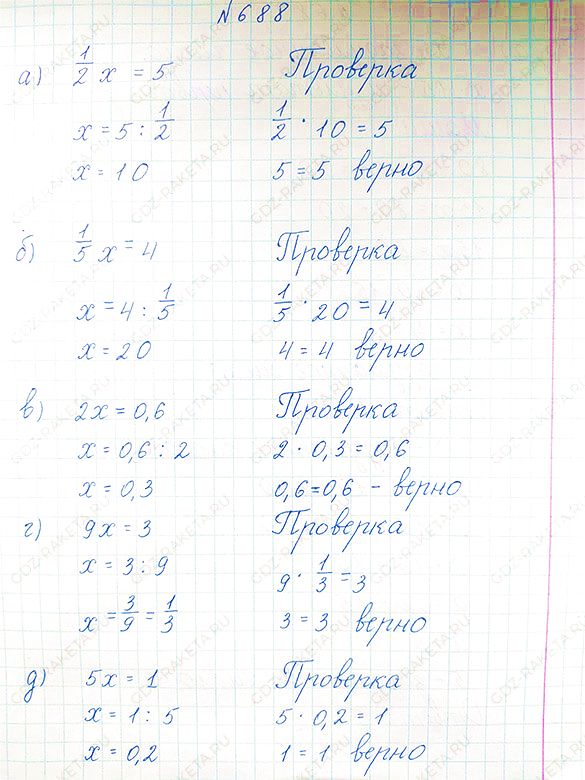 №688
а) 1/2 x = 5 Проверка
x = 5 : 1/2 1/2 · 10 = 5
x = 10 5 = 5 верно
б) 1/5 x = 4 Проверка
x = 4 : 1/5 1/5 · 20 = 4
x = 20 4 = 4 верно
в) 2x = 0,6 Проверка
x = 0,6 : 2 2 · 0,3 = 0,6
x = 0,3 0,6 = 0,6 – верно
г) 9x = 3 Проверка
x = 3 : 9 9 · 1/3 = 3
x = 3/9 = 1/3 3 = 3 верно
д) 5x = 1 Проверка
x = 1 : 5 5 · 0,2 = 1
x = 0,2 1 = 1 верно
GDZ-RAKETA.RU